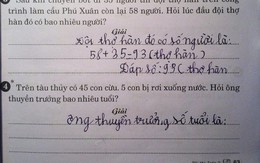 Sau khi chuyển bớt đi 35 người thì đội thợ hàn trên công
trình làm cầu Phú Xuân còn lại 58 người. Hỏi lúc đầu đội thợ
hàn đó có bao nhiêu người?
Giải
Đội thợ hàn đó có số người là:
58 + 35 = 93 (thợ hàn)
Đáp số: 93 (thợ hàn
4 Trên tàu thủy có 45 con cừu. 5 con bị rơi xuống nước. Hỏi ông
thuyền trưởng bao nhiêu tuổi?
Giải
Ông thuyền trưởng số tuổi là: